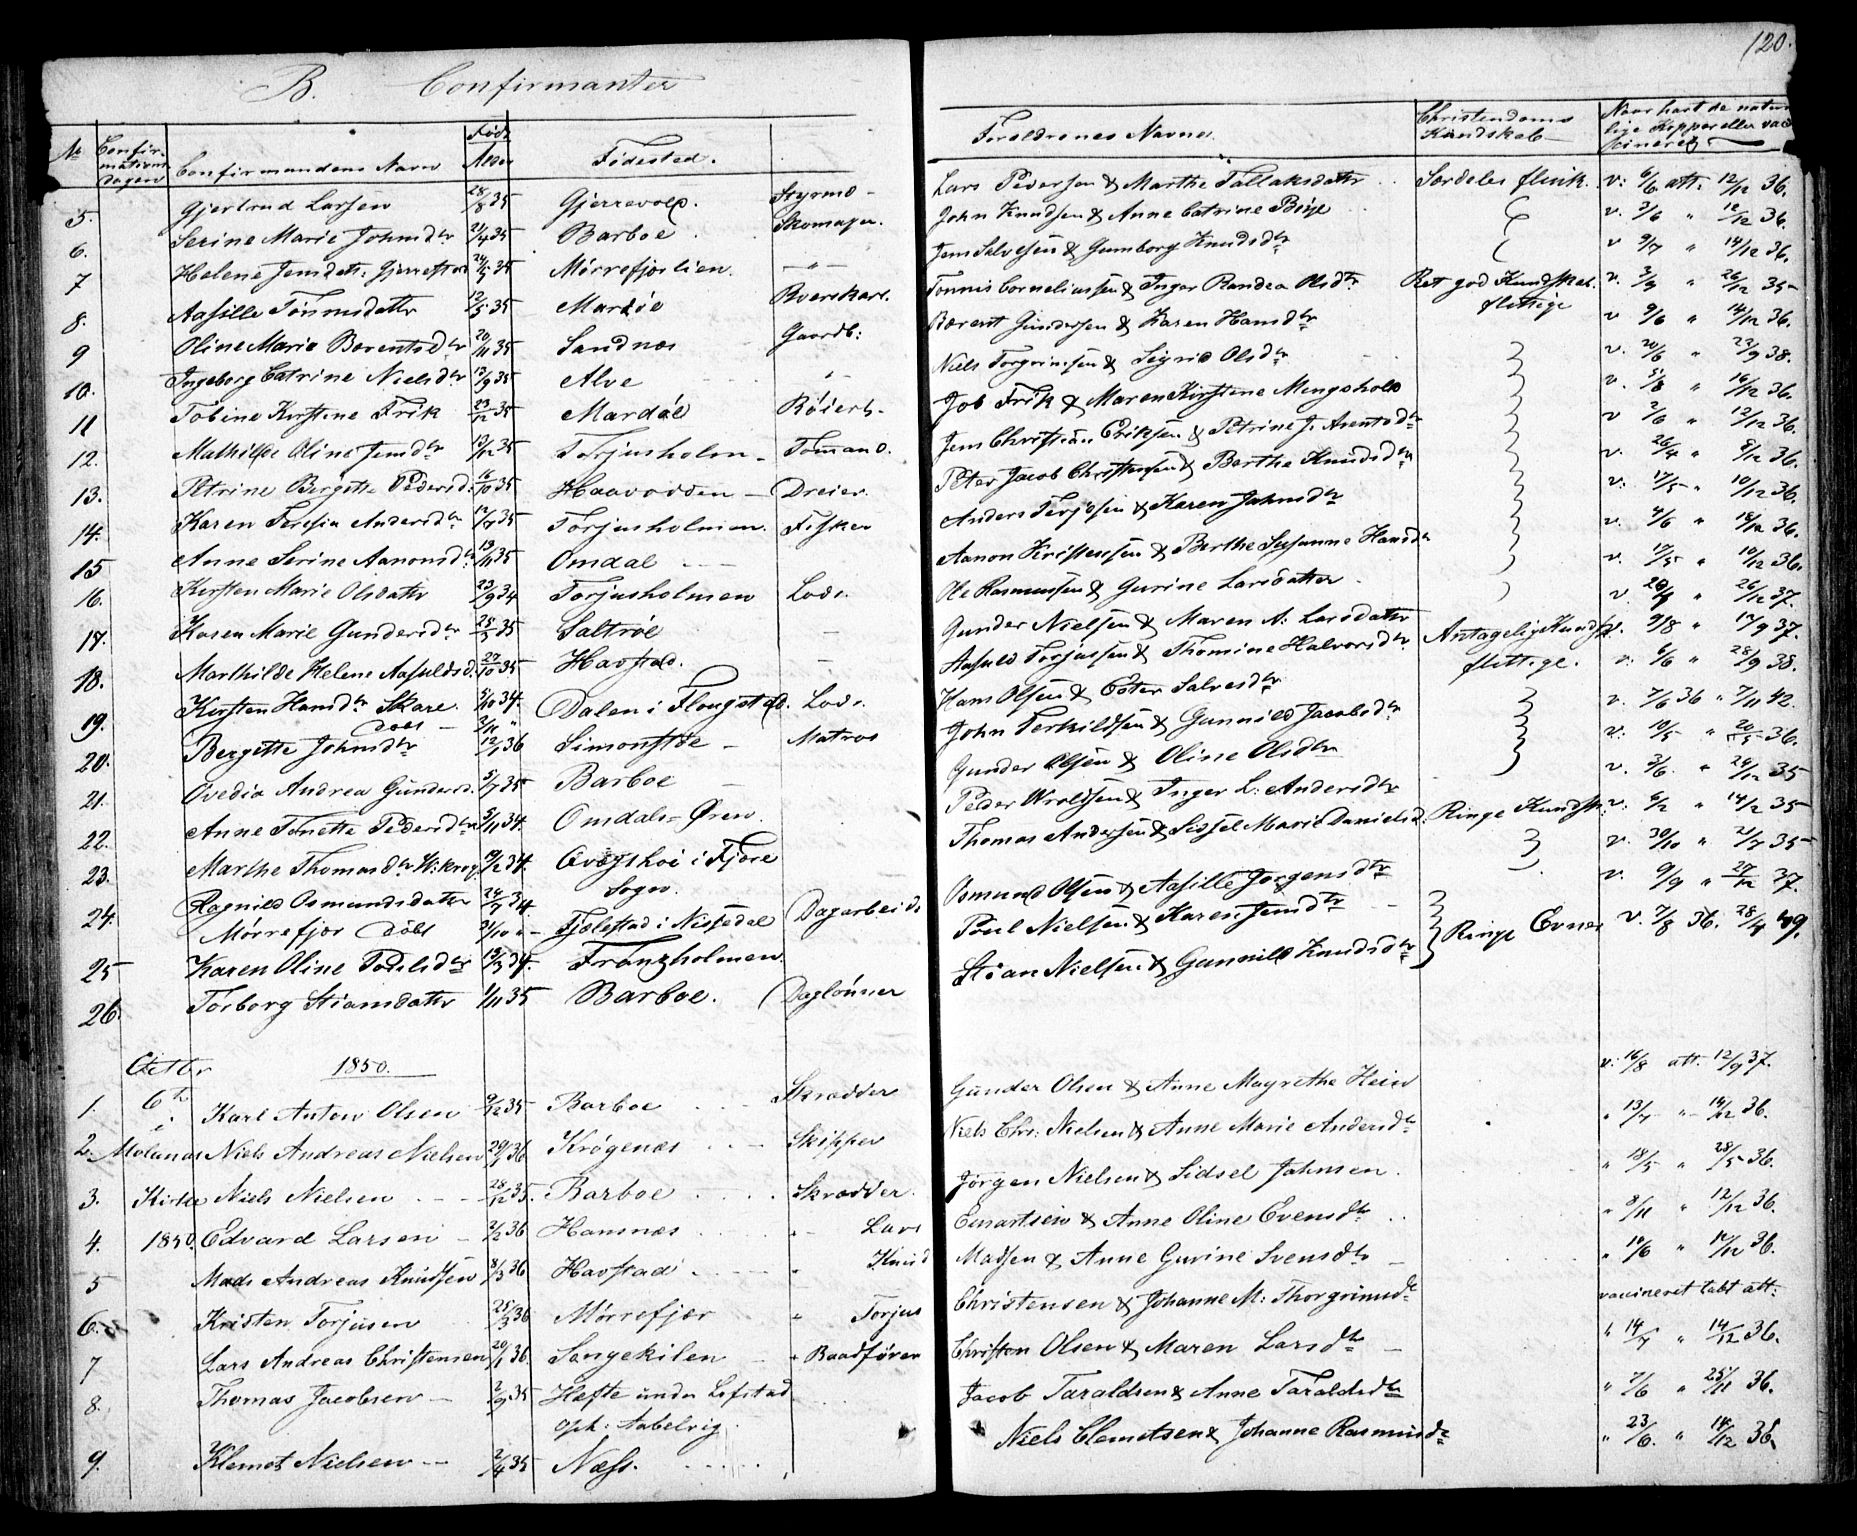 120.
B. Confirmanter
No Confirmations dagen Confirmandens Navn Född Aar Födested. Forældrenes Navne. Christendoms Kundskab Naar havt de naturlige Kopper eller vaccineret
5. Gjertrud Larsen 28/8 35 Gjerrevold. Styrmd - Lars Pedersen & Marthe Tallaksdatter Særdeles flink. v: 6/6 att: 12/12 36.
6. Serine Marie Johnsdtr 21/4 35 Barboe Skomager. John Knudsen & Anne Catrine Böye v. 3/6 " 12/12 36.
7 Helene Jensdatr: Gjerrestad 24/5 35 Mörrefjærlien. - " - Jens Salvesen & Gunnborg Knudsdtr v 9/7 " 14/12 36.
8. Aasille Tönnisdatter 12/5 35 Mardöe Bverskarl. Tönnis Corneliussen & Inger Randea Olsdtr Ret god Kundskab. flittige v. 3/9 " 26/12 35
9 Oline Marie Berentsdtr 20/11 35 Sandnæs Gaardb: Berent Gundersen & Karen Hansdtr v 9/6 " 14/12 36.
10. Ingeborg Catrine Nielsdtr 13/9 35 Alve " Niels Torgrimsen & Sigrid Olsdtr v. 20/6 " 23/9 38.
11 Tobine Kirstine Frik 23/12 35 Mardöe Röiert. Job Frik & Maren Kirstine Mengshold v. 5/8 " 16/12 36.
12. Mathilde Oline Jensdtr 13/12 35 Torjusholm Tömand. Jens Christian Eriksen & Petrine J. Arentsdtr v 2/6 " 12/12 36.
13. Petrine Bergitte Pedersd. 16/10 35 Haavodden Dreier. Peter Jacob Christensen & Berthe Knudsdtr v. 26/4 " 8/12 36.
14. Karen Teresia Andersdtr 12/7 35 Torjusholmen. Fisker Anders Terjesen & Karen Jahnsdtr v: 17/5 " 10/12 36.
15 Anne Serine Aanonsd. 13/11 35 Omdal Aanon Kristensen & Berthe Susanne Hansdtr v. 4/6 " 14/12 36.
16. Kirsten Marie Olsdatr 23/9 34 Torjusholmen Lods. Ole Rasmussen & Gurine Larsdatter v. 17/5 " 10/12 36.
17. Karen Marie Gundersdtr 25/5 35 Saltröe - Gunder Nielsen & Maren A. Larsdatter v 26/12 37.
18. Marthilde Helene Aasuldsd. 27/10 35 Havstad. - Aasuld Torjussen & Thomine Halvorsdtr Antagelig Kundsk. flittige. v. 9/8 " 17/9 37.
19. Kirsten Hansdtr Skare. 5/10 34. döbt 2/11 " Dalen i Flougstad. Lods. Hans Olsen & Ester Salvesdtr v: 6/6 " 28/9 38.
20. Bergitte Johnsdtr 12/1 36 Simonstöe Matros John Terkildsen & Gunnild Jacobsdtr v. 7/6 36 " 7/11 42.
21. Ovedia Andrea Gundersd. 5/7 35 Barboe Gunder Olsen & Oline Olsdtr v: 10/5 " 20/5 36.
22. Anne Tonette Pedersdtr 5/11 34. Omdals-Øren. Peder Wroldsen & Inger L: Andersdtr v. 3/6. " 26/12 35
23. Marthe Thomasdtr Wikeng 9/2 34. i Fjöre Sogn. Thomas Andersen & Sissel Marie Danielsd. Ringe Kundsk. v: 6/2 " 14/12 35
24. Ragnild Osmundsdatter 24/7 34 Mörrefjær döbt 21/10 " - Fjelestad i Nissedal Dagarbeids Osmund Olsen & Aasille Jorgensdtr v. 30/10 " 21/7 35
25 Karen Oline Poulsdtr 13/3 34. Franzholmen. Poul Nielsen & Karen Jensdtr v. 9/9 " 27/12 37.
26. Torborg Stiansdatr 1/11 35 Barboe. Daglönner Stian Nielsen & Gunnild Knudsdtr Ringe Evner v. 7/8 36. 28/4 49.
Octbr 1850.
1. 6te Karl Anton Olsen 9/12 35 Barboe Skrædder Gunder Olsen & Anne Magrethe Heiw v: 16/8 att. 12/9 37.
2. i Molanæs Niels Andreas Nielsen 29/1 36 Krögenæs Skipper Niels Chr: Nielsen & Anne Marie Andersdtr " 13/7 " 14/12 36.
3. Kirke Niels Nielsen 28/12 35. Barboe Skrædder. Jörgen Nielsen & Sidsel Jahnsen. " 18/5 " 28/5 36.
4. 1850. Edvard Larsen 2/2 36 Hansnæs " Lars Enartsen & Anne Oline Evensdtr " 8/11 " 12/12 36.
5 Mads Andreas Knudsen 8/3 36 Havstad " Knud Madsen & Anne Gurine Svensdtr " 10/6 " 10/12 36.
6. Kristen Torjusen 25/3 36 Mörrefjær " Torjus Christensen & Johanne M: Thorgrimsdtr vaccineret tabt att:
7 Lars Andreas Christensen 20/1 36. Songekilen " Baadförer Christen Olsen & Maren Larsdtr " 14/7 " 14/12 36.
8. Thomas Jacobsen 2/9 35 Hæfte under Lofstad oph: Aabelvig. Jacob Taraldsen & Anne Taraldsdtr " 7/6 " 25/11 36.
9. Klemet Nielsen 2/4 35 Næss. Niels Clemetsen & Johanne Rasmusdtr " 23/6. " 14/12 36.